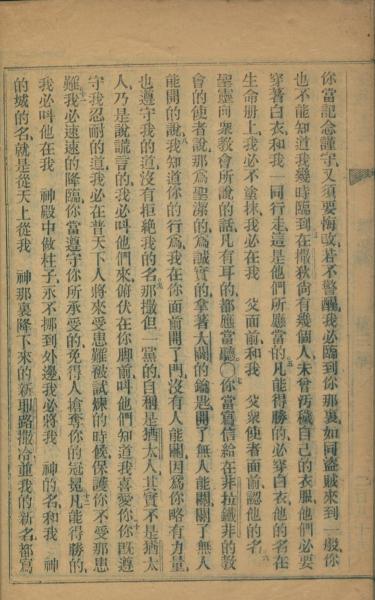 你當記念謹守又須要悔改若不警醒我必臨到你那裏如同盜賊來到一般你
也不能知道我幾時臨到在撒狄尚有幾個人未曾汚穢自己的衣服他們必要
穿著白衣和我一同行走這是他們所應當的凡能得勝的必穿白衣他的名在
生命册上我必不塗抹我必在我　父面前和我　父衆使者面前認他的名
聖靈向衆教會所說的話凡有耳的都應當聽〇你當寫信給在非拉鐵非的教
會的使者說那爲聖潔的爲誠實的拿著大闢的鑰匙開了無人能關關了無人
能開的說我知道你的行爲我在你面前開了門沒有人能關因爲你略有力量
也遵守我的道沒有拒絕我的名那撒但一黨的自稱是猶太人其實不是猶太
人乃是說謊言的我必叫他們來俯伏在你脚前叫他們知道我喜愛你你既遵
守我忍耐的道我必在普天下人將來受患難被試煉的時候保護你不受那患
難我必速速的降臨你當遵守你所承受的免得人搶奪你的冠冕凡能得勝的
我必叫他在我　神殿中做柱子永不挪到外邊我必將我　神的名和我　神
的城的名就是從天上從我　神那裏降下來的新耶路撒冷並我的新名都寫